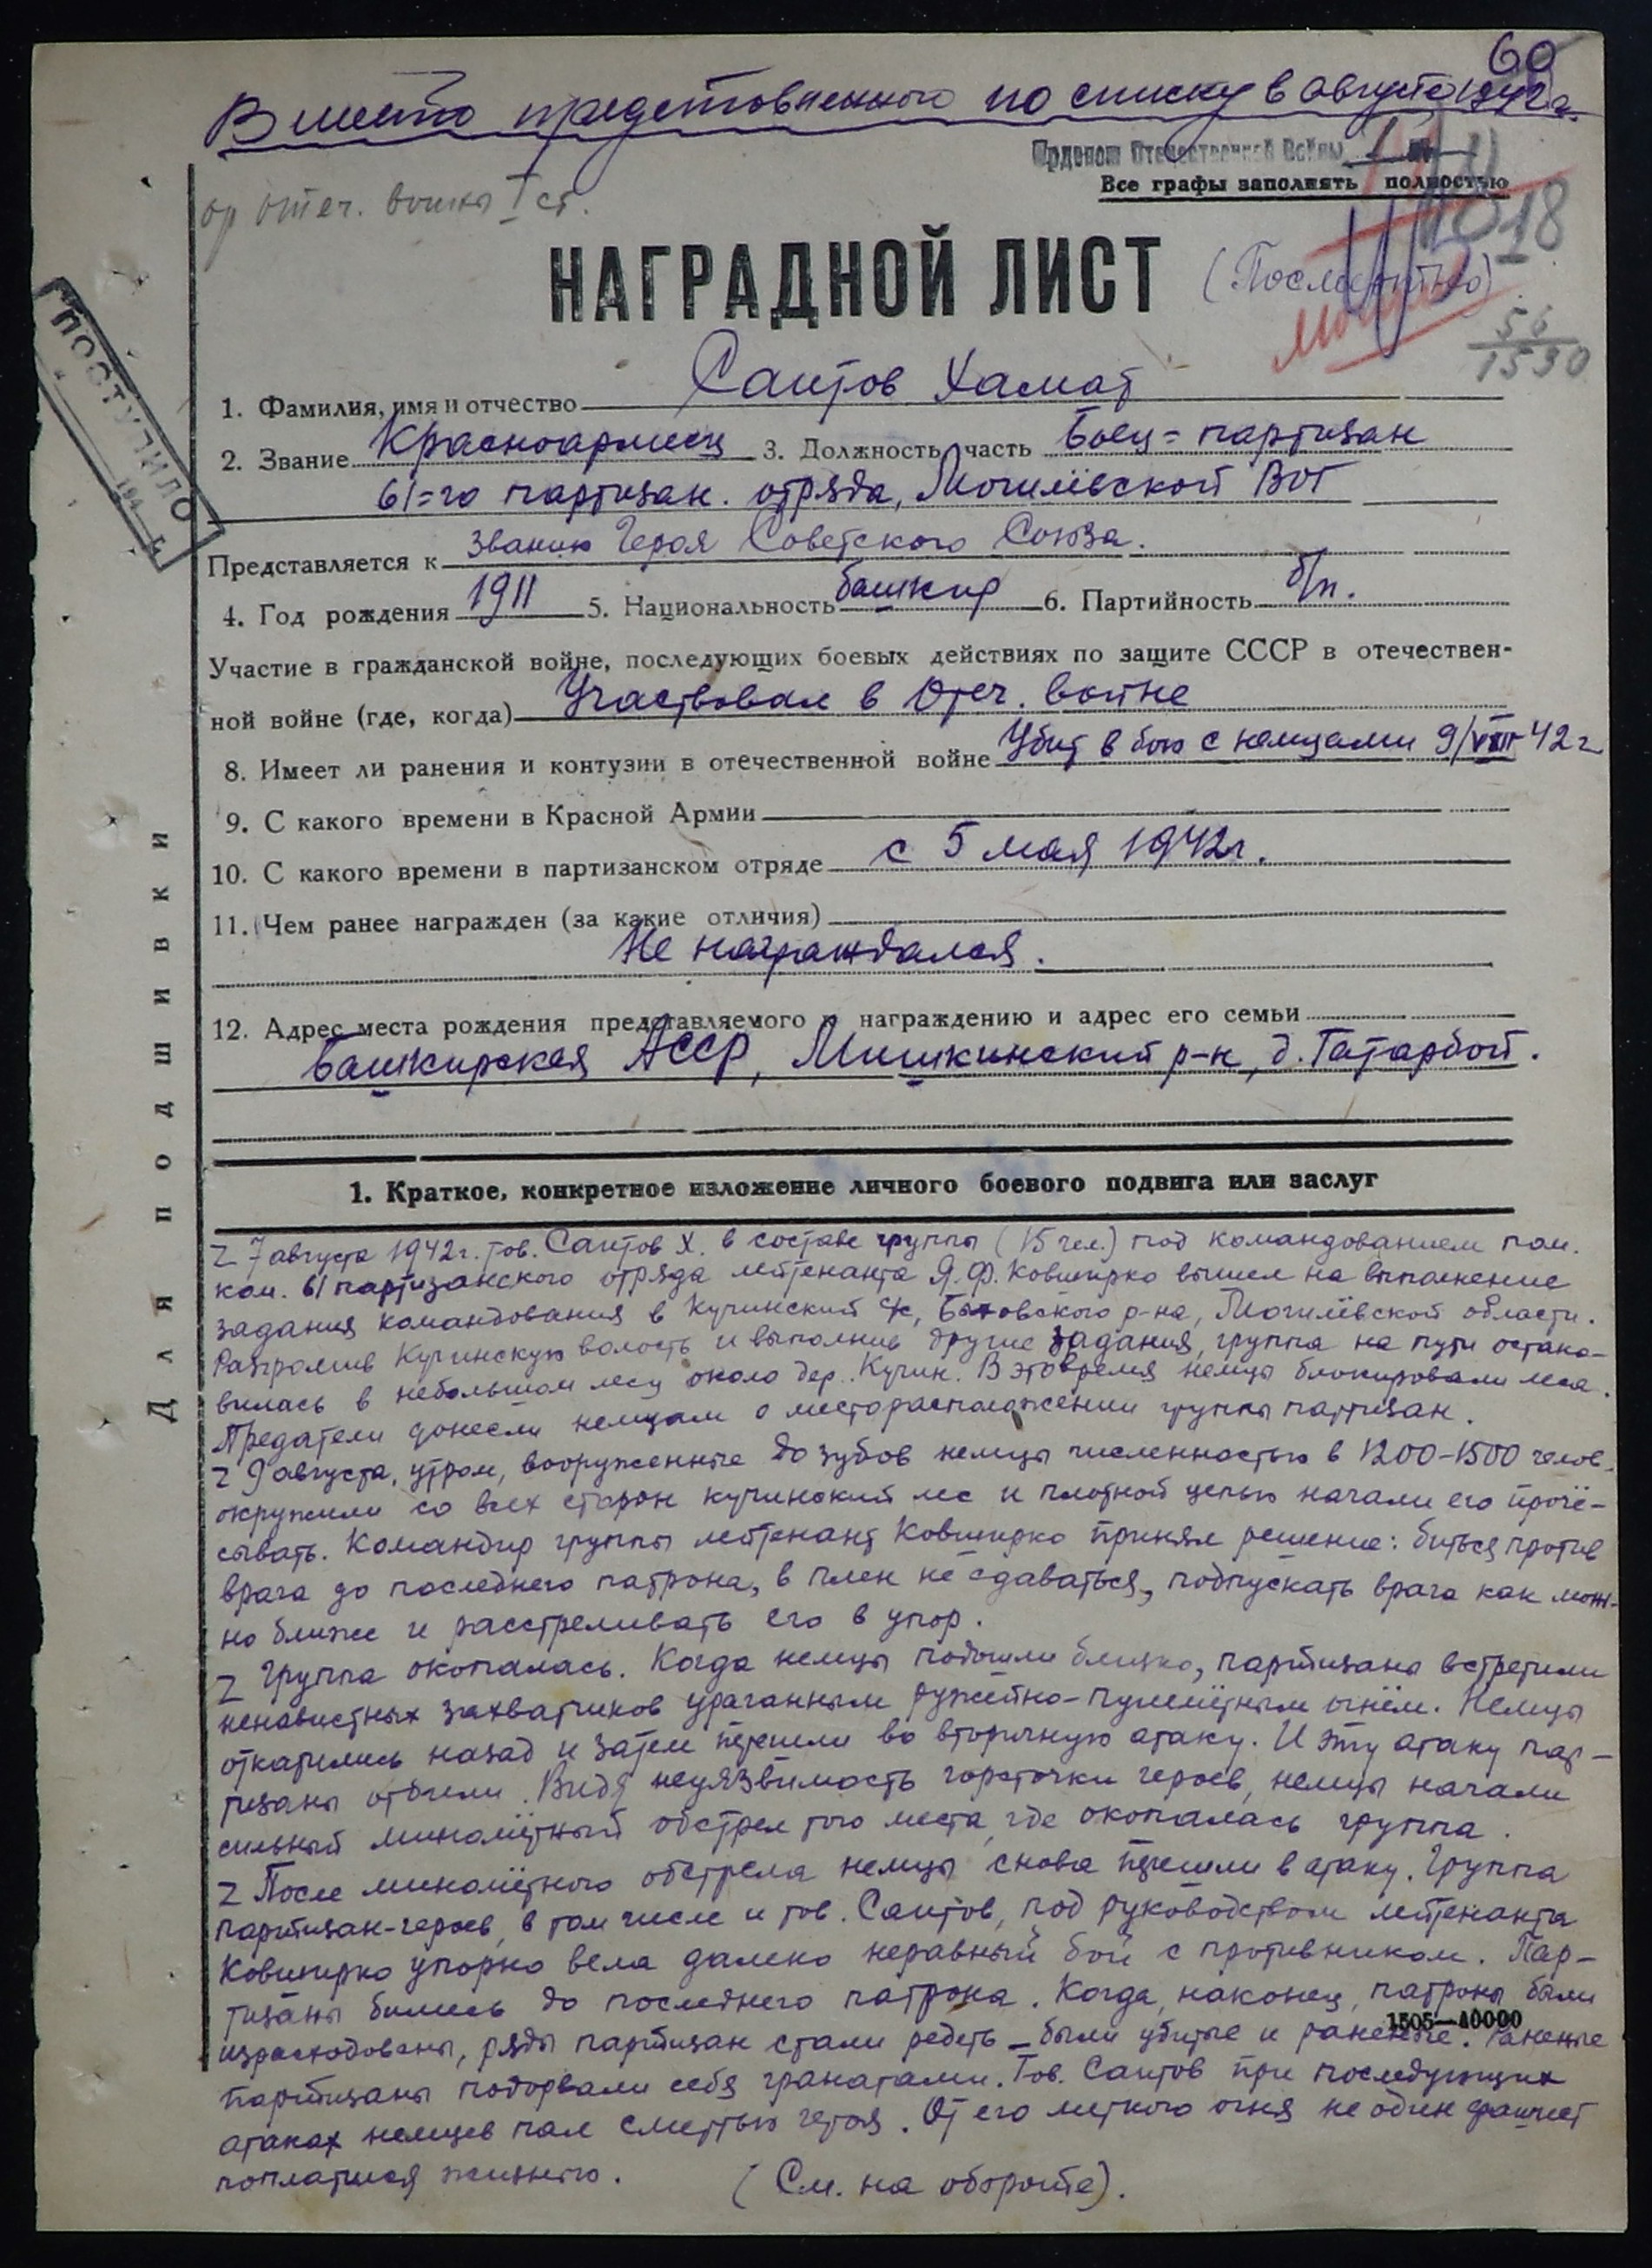 60
Вместо представленного по списку в августе 1942 г.
Орденом Отечественной Войны I
Все графы заполнять полностью
ор отеч. войны I ст.
18
НАГРАДНОЙ ЛИСТ (Посмертно)
56
1590
ПОСТУПИЛО
194 г.
1. Фамилия, имя и отчество Саитов Хамат
2. Звание Красноармеец 3. Должность, часть Боец-партизан
61-го партизан. отряда, Могилёвской ВОГ
Представляется к званию Героя Советского Союза.
4. Год рождения 1911 5. Национальность башкир 6. Партийность б/п.
Участие в гражданской войне, последующих боевых действиях по защите СССР в отечествен-
ной войне (где, когда) Участвовал в Отеч. войне
8. Имеет ли ранения и контузии в отечественной войне Убит в бою с немцами 9/VIII-42 г
9. С какого времени в Красной Армии
10. С какого времени в партизанском отряде с 5 мая 1942г.
11. Чем ранее награжден (за какие отличия)
Не награждался.
12. Адрес места рождения представляемого к награждению и адрес его семьи
Башкирская АССР, Мишкинский р-н, д. Татарбой.
Для подшивки
1. Краткое, конкретное изложение личного боевого подвига или заслуг
7 августа 1942г. тов. Саитов Х. в составе группы (15 чел.) под командованием пом.
ком. 61 партизанского отряда лейтенанта Я.Ф. Ковширко вышел на выполнение
задания командования в Кучинский с/с, Быховского р-на, Могилёвской области.
Разгромив Кучинскую волость и выполнив другие задания, группа на пути остано-
вилась в небольшом лесу около дер. Кучин. В это время немцы блокировали леса.
Предатели донесли немцам о месторасположении группы партизан.
9 августа, утром, вооруженные до зубов немцы численностью в 1200-1500 челов.
окружили со всех сторон кучинский лес и плотной цепью начали его прочё-
сывать. Командир группы лейтенант Ковширко принял решение: биться против
врага до последнего патрона, в плен не сдаваться, подпускать врага как мож-
но ближе и расстреливать его в упор.
Группа окопалась. Когда немцы подошли близко, партизаны встретили
ненавистных захватчиков ураганным ружейно-пулемётным огнём. Немцы
откатились назад и затем перешли во вторичную атаку. И эту атаку пар-
тизаны отбили. Видя неуязвимость горсточки героев, немцы начали
сильный миномётный обстрел того места, где окопалась группа.
После миномётного обстрела немцы снова перешли в атаку. Группа
партизан-героев, в том числе и тов. Саитов, под руководством лейтенанта
Ковширко упорно вела далеко неравный бой с противником. Пар-
тизаны бились до последнего патрона. Когда, наконец, патроны были
1505—40000
израсходованы, ряды партизан стали редеть - были убитые и раненые. Раненые
партизаны подорвали себя гранатами. Тов. Саитов при последующих
атаках немцев пал смертью героя. От его меткого огня не один фашист
поплатился жизнью. (См. на обороте).